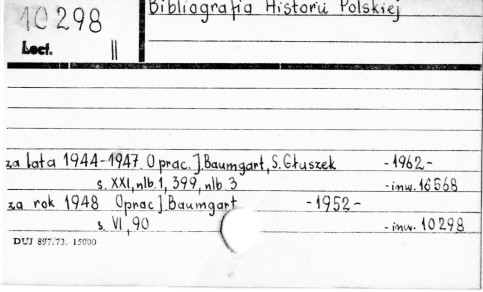 10298
Bibliografia Historii Polskiej
Lect. II
za lata 1944-1947. Oprac. J. Baumgart, S. Głuszek -1962-
s. XXI, nlb. 1, 399, nlb. 3 -inw. 16568
za rok 1948 Oprac J. Baumgart -1952-
s. VI, 90 -inw. 10298
DUJ 897/73. 15000